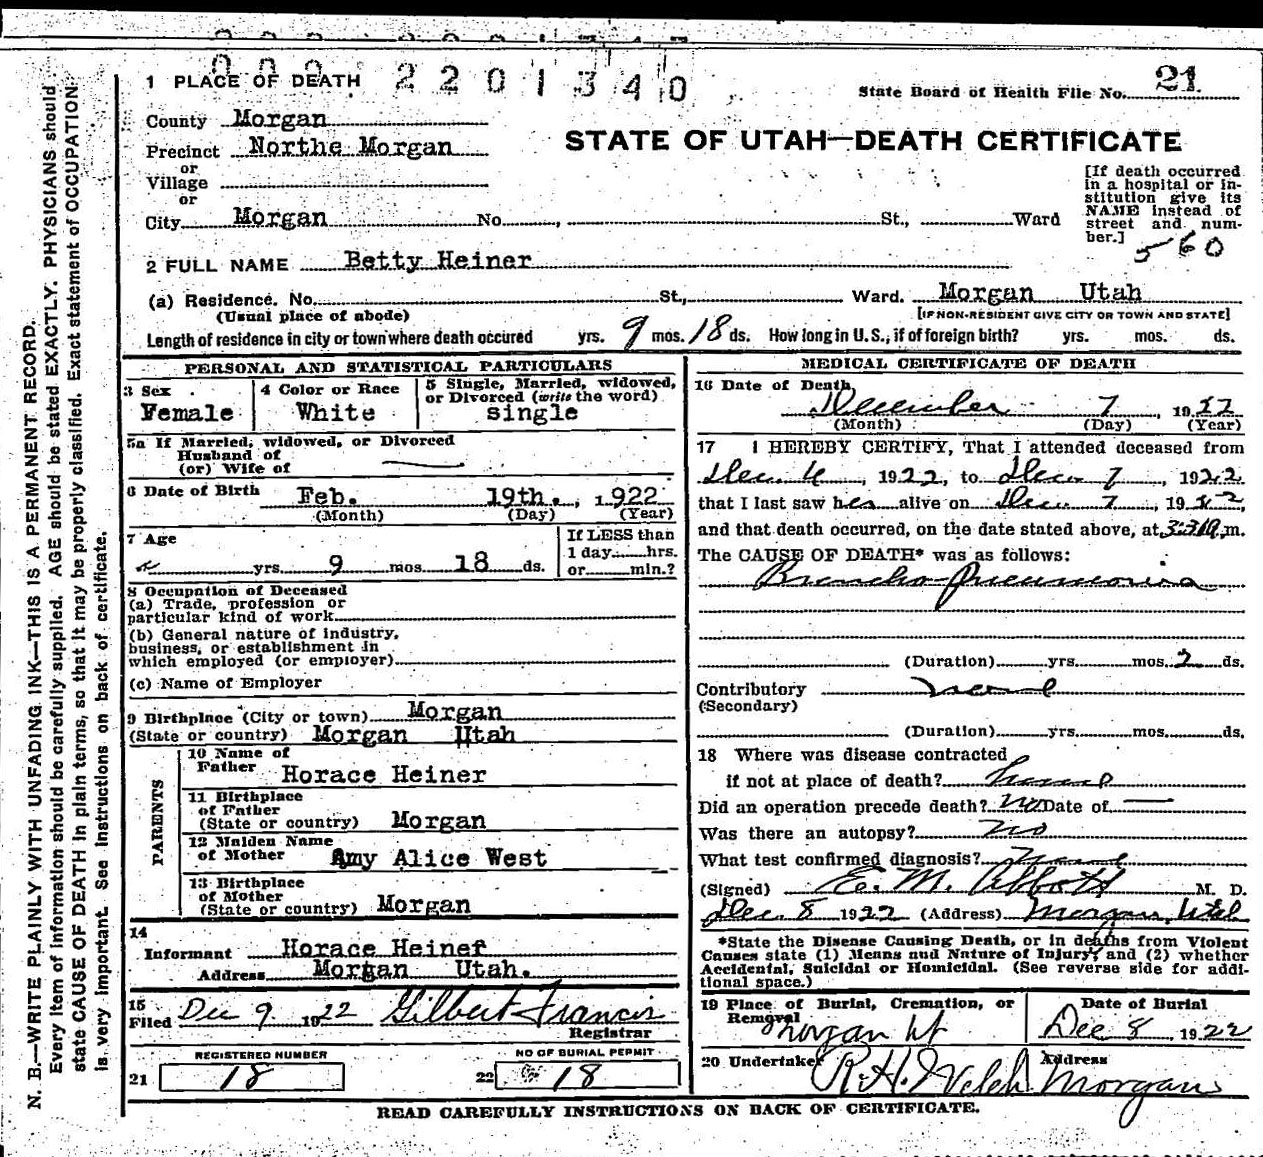 2201340
1 PLACE OF DEATH
State Board of Health File No. 21
County Morgan
STATE OF UTAH—DEATH CERTIFICATE
Precinct Northe Morgan
or
Village
or
City Morgan No. , St., Ward
[If death occurred
in a hospital or in-
stitution give its
NAME instead of
street and num-
ber.]
560
2 FULL NAME Betty Heiner
(a) Residence. No. St., Ward. Morgan Utah
(Usual place of abode) [IF NON-RESIDENT GIVE CITY OR TOWN AND STATE]
Length of residence in city or town where death occured yrs. 9 mos. 18 ds. How long in U.S., if of foreign birth? yrs. mos. ds.
PERSONAL AND STATISTICAL PARTICULARS
3 Sex
Female
4 Color or Race
White
5 Single, Married, widowed,
or Divorced (write the word)
single
5a If Married, widowed, or Divorced
Husband of
(or) Wife of
6 Date of Birth Feb. 19th. , 1922
(Month) (Day) (Year)
7 Age
yrs. 9 mos 18 ds.
If LESS than
1 day hrs.
or min.?
8 Occupation of Deceased
(a) Trade, profession or
particular kind of work
(b) General nature of industry,
business, or establishment in
which employed (or employer)
(c) Name of Employer
9 Birthplace (City or town) Morgan
(State or country) Morgan Utah
PARENTS
10 Name of
Father Horace Heiner
11 Birthplace
of Father
(State or country) Morgan
12 Maiden Name
of Mother Amy Alice West
13 Birthplace
of Mother
(State or country) Morgan
14
Informant Horace Heiner
Address Morgan Utah.
15
Filed Dec 9 1922 Gilbert Francis
Registrar
REGISTERED NUMBER
21 18
NO OF BURIAL PERMIT
22 18
MEDICAL CERTIFICATE OF DEATH
16 Date of Death,
December 7, 1922
(Month) (Day) (Year)
17 I HEREBY CERTIFY, That I attended deceased from
Dec. 4, 1922, to Dec 7, 1922
that I last saw her alive on Dec 7, 1922,
and that death occurred, on the date stated above, at m.
The CAUSE OF DEATH* was as follows:
Broncho-Pneumonia
(Duration) yrs. mos. 2 ds.
Contributory none
(Secondary)
(Duration) yrs. mos. ds.
18 Where was disease contracted
if not at place of death? home
Did an operation precede death? no Date of —
Was there an autopsy? no
What test confirmed diagnosis? none
(Signed) E. M. Abbott M. D.
Dec 8 1922 (Address) Morgan, Utah
*State the Disease Causing Death, or in deaths from Violent
Causes state (1) Means and Nature of Injury; and (2) whether
Accidental, Suicidal or Homicidal. (See reverse side for addi-
tional space.)
19 Place of Burial, Cremation, or
Removal
Morgan Ut
Date of Burial
Dec 8 1922
20 Undertaker R.H. Welch
Address
Morgan
READ CAREFULLY INSTRUCTIONS ON BACK OF CERTIFICATE.
N. B.—WRITE PLAINLY WITH UNFADING INK—THIS IS A PERMANENT RECORD.
Every item of information should be carefully supplied. AGE should be stated EXACTLY. PHYSICIANS should
state CAUSE OF DEATH in plain terms, so that it may be properly classified. Exact statement of OCCUPATION
is very important. See instructions on back of certificate.